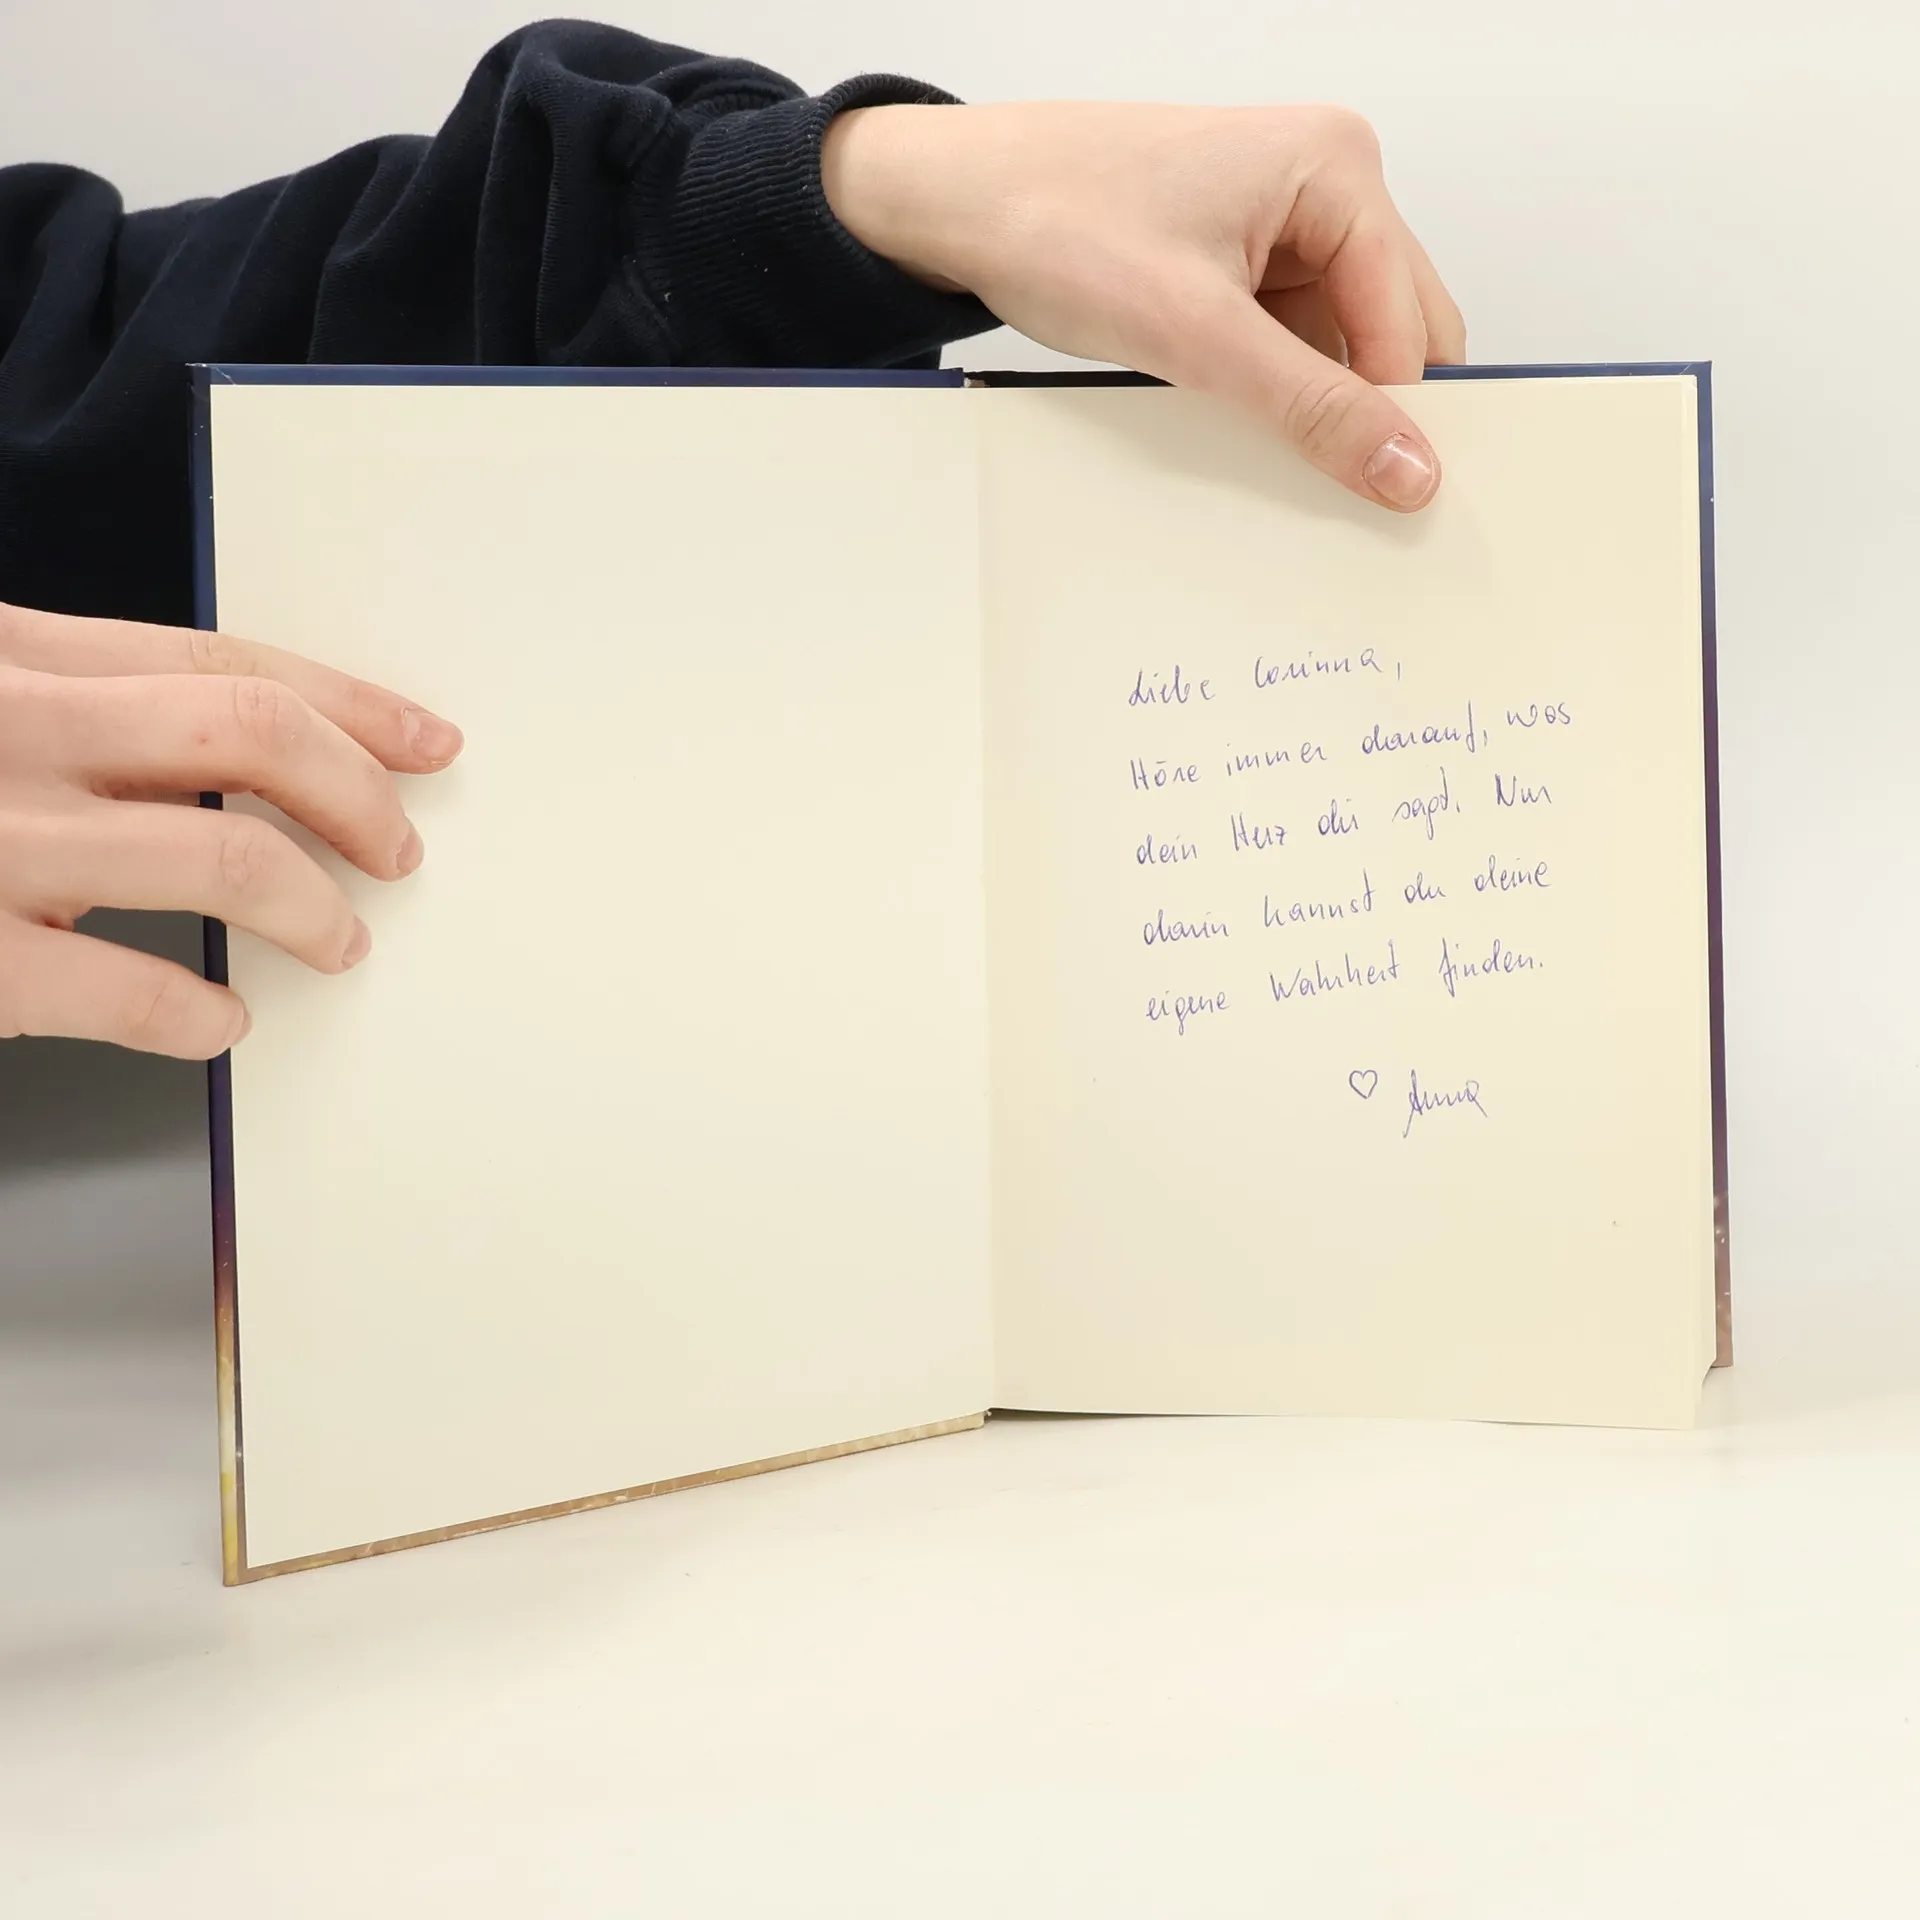 Liebe Corinna,
Höre immer darauf, was
dein Herz dir sagt. Nur
darin kannst du deine
eigene Wahrheit finden.
♡ Anna